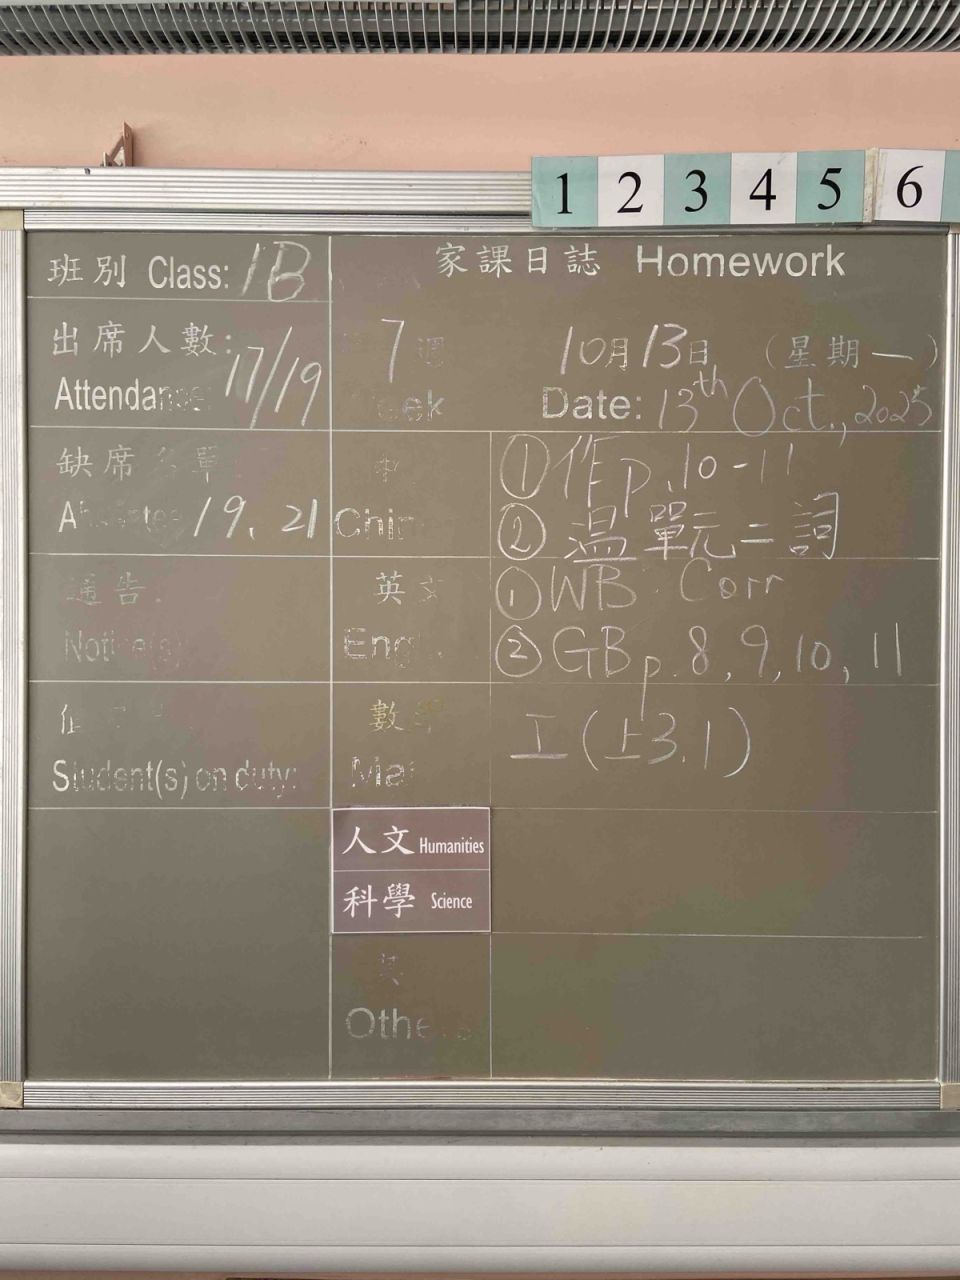 1 2 3 4 5 6
班別 Class: 1B
家課日誌 Homework
出席人數:
Attendance: 17/19
7 週
Week
10月13日 (星期一)
Date: 13th Oct., 2025
缺席名單
Absentee 19、21
中
Chin
① 作 p.10-11
② 温單元二詞
通告:
Notice(s)
英文
Eng
① WB Corr
② GB p.8, 9, 10, 11
Student(s) on duty:
數學
Mat
工(上3.1)
人文 Humanities
科學 Science
其
Others